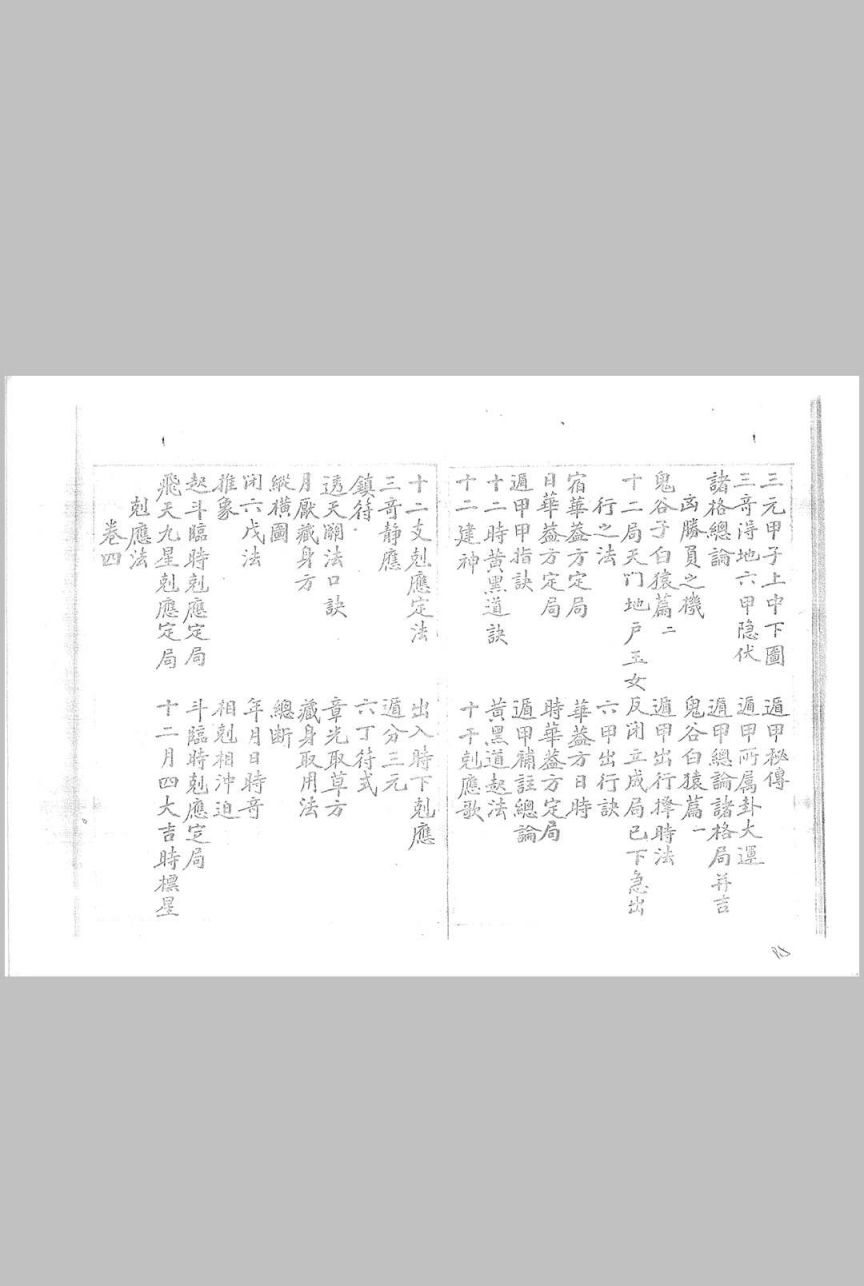 三元甲子上中下圖　遁甲秘傳
三竒得地六甲隐伏　遁甲所属卦大運
諸格總論　遁甲總論諸格局并吉
凶勝負之機　鬼谷白猿篇一
鬼谷子白猿篇二　遁甲出行擇時法
十二局天门地戸玉女反闭立成局已下急出
行之法　六甲出行訣
宿華葢方定局　華葢方日時
日華葢方定局　時華葢方定局
遁甲甲指訣　遁甲補註總論
十二時黄黑道訣　黄黑道起法
十二建神　十干剋應歌
十二支剋應定法　出入時下剋應
三竒静應　遁分三元
鎮符　六丁符式
透天關法口訣　章光取草方
月厭藏身方　藏身取用法
縱横圖　總断
闭六戊法　年月日時竒
推象　相剋相沖迫
起斗臨時剋應定局　斗臨時剋應定局
飛天九星剋應定局　十二月四大吉時標星
剋應法
卷四